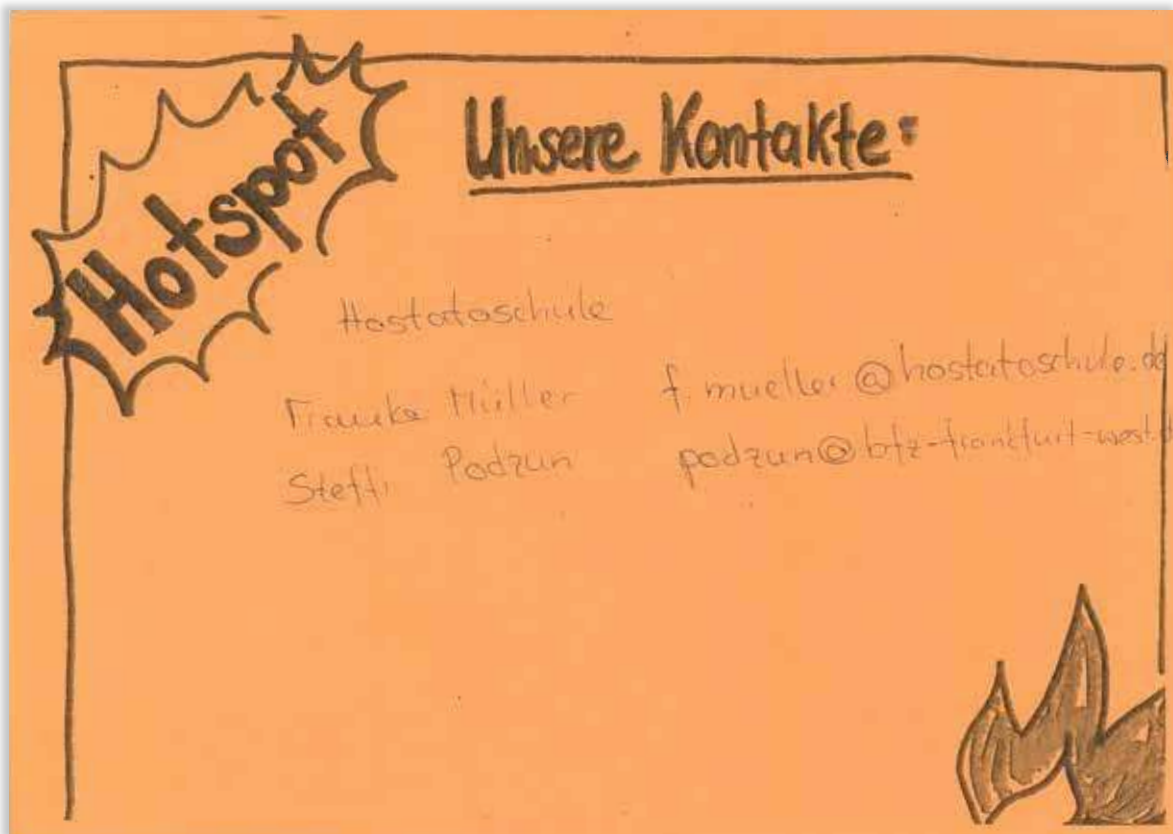 Hotspot
Unsere Kontakte:
Hostatoschule
Frauke Müller f.mueller@hostatoschule.de
Steffi Podzun podzun@bfz-frankfurt-west.